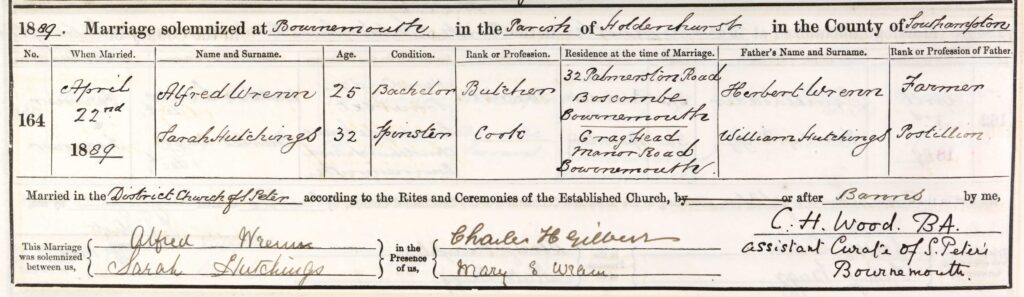 1889. Marriage solemnized at Bournemouth in the Parish of Holdenhurst in the County of Southampton
No. When Married. Name and Surname. Age. Condition. Rank or Profession. Residence at the time of Marriage. Father's Name and Surname. Rank or Profession of Father.
164 April 22nd 1889
Alfred Wrenn 25 Bachelor Butcher 32 Palmerston Road Boscombe Bournemouth Herbert Wrenn Farmer
Sarah Hutchings 32 Spinster Cook Crag Head Manor Road Bournemouth William Hutchings Postillion
Married in the District Church of S Peter according to the Rites and Ceremonies of the Established Church, by or after Banns by me,
This Marriage was solemnized between us, Alfred Wrenn Sarah Hutchings in the Presence of us, Charles H Gilbert Mary E Wrenn
C. H. Wood. BA.
assistant Curate of S. Peter's
Bournemouth.